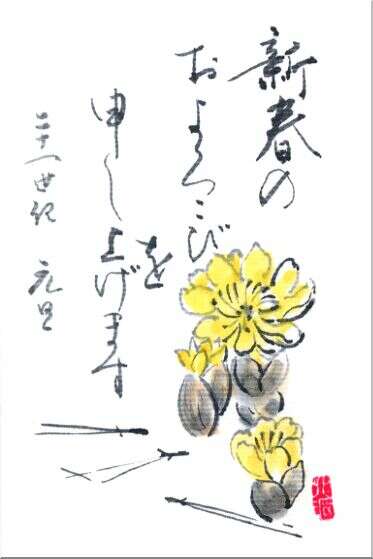 新春の
およろこび
を
申し上げます
二十一世紀 元旦